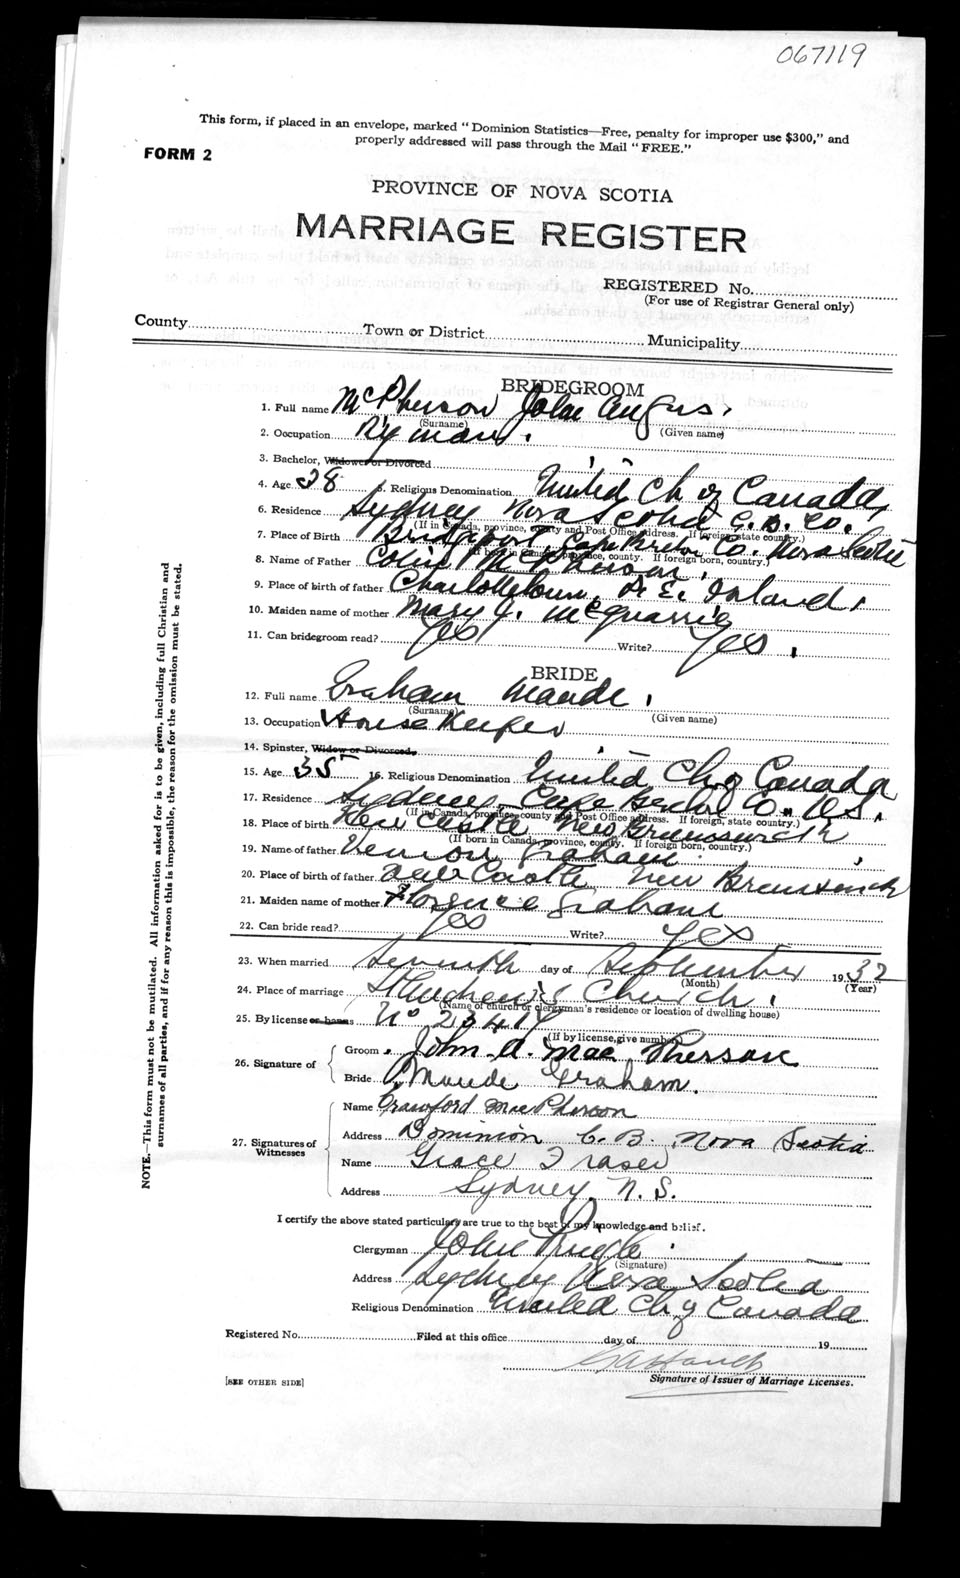 067119
This form, if placed in an envelope, marked "Dominion Statistics—Free, penalty for improper use $300," and
properly addressed will pass through the Mail "FREE."
FORM 2
PROVINCE OF NOVA SCOTIA
MARRIAGE REGISTER
REGISTERED No.
(For use of Registrar General only)
County Town or District Municipality
BRIDEGROOM
1. Full name McPherson John Angus.
(Surname) (Given name)
2. Occupation Ry man.
3. Bachelor, Widower or Divorced
4. Age 28 5. Religious Denomination United Ch of Canada
6. Residence Sydney Nova Scotia C. B. Co.
(If in Canada, province, county and Post Office address. If foreign, state country.)
7. Place of Birth Bridgeport Cape Breton Co. Nova Scotia
(If born in Canada, province, county. If foreign born, country.)
8. Name of Father Colin McPherson.
9. Place of birth of father Charlottetown, P. E. Island.
10. Maiden name of mother Mary J. McQuarrie
11. Can bridegroom read? Yes Write? Yes.
BRIDE
12. Full name Graham Maude.
(Surname) (Given name)
13. Occupation House Keeper
14. Spinster, Widow or Divorced.
15. Age 35 16. Religious Denomination United Ch of Canada
17. Residence Sydney Cape Breton Co. N.S.
(If in Canada, province, county and Post Office address. If foreign, state country.)
18. Place of birth New Castle New Brunswick
(If born in Canada, province, county. If foreign born, country.)
19. Name of father Vernon Graham.
20. Place of birth of father New Castle, New Brunswick
21. Maiden name of mother Florence Graham
22. Can bride read? Yes Write? Yes
23. When married Seventh day of September 1932
(Month) (Year)
24. Place of marriage St Andrew's Church.
(Name of church or clergyman's residence or location of dwelling house)
25. By license or banns No 23414
(If by license, give number)
26. Signature of
Groom John A. MacPherson
Bride Maude Graham.
27. Signatures of Witnesses
Name Crawford MacPherson
Address Dominion C. B. Nova Scotia
Name Grace Fraser
Address Sydney, N. S.
I certify the above stated particulars are true to the best of my knowledge and belief.
Clergyman John Pringle
(Signature)
Address Sydney Nova Scotia
Religious Denomination United Ch of Canada
Registered No. Filed at this office day of 19
Signature of Issuer of Marriage Licenses.
[SEE OTHER SIDE]
NOTE.—This form must not be mutilated. All information asked for is to be given, including full Christian and
surnames of all parties, and if for any reason this is impossible, the reason for the omission must be stated.